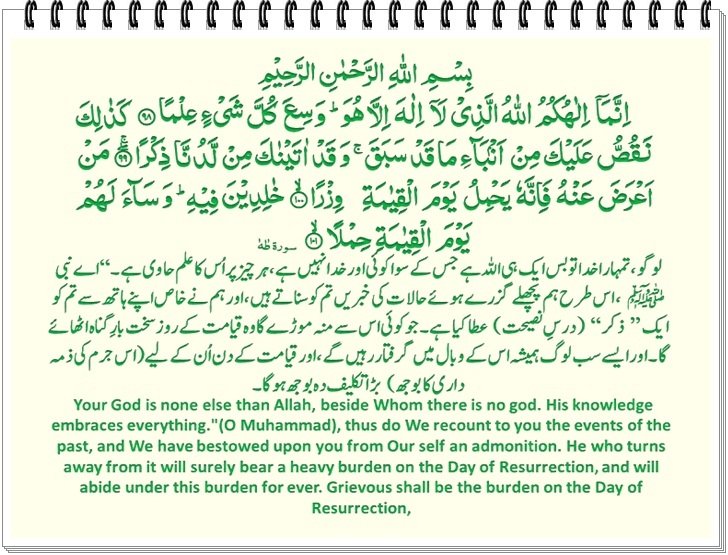 بِسْمِ اللهِ الرَّحْمٰنِ الرَّحِيْمِ
اِنَّمَاۤ اِلٰهُكُمُ اللهُ الَّذِىْ لَاۤ اِلٰهَ اِلَّا هُوَ ؕ وَسِعَ كُلَّ شَىْءٍ عِلْمًا ۹۸ كَذٰلِكَ
نَقُصُّ عَلَيْكَ مِنْ اَنْۢبَآءِ مَا قَدْ سَبَقَ ۚ وَ قَدْ اٰتَيْنٰكَ مِنْ لَّدُنَّا ذِكْرًا ۹۹ مَنْ
اَعْرَضَ عَنْهُ فَاِنَّهٗ يَحْمِلُ يَوْمَ الْقِيٰمَةِ وِزْرًا ۱۰۰ خٰلِدِيْنَ فِيْهِ ؕ وَ سَآءَ لَهُمْ
يَوْمَ الْقِيٰمَةِ حِمْلًا ۱۰۱ سورة طٰهٰ
لوگو، تمہارا خدا تو بس ایک ہی اللہ ہے جس کے سوا کوئی اور خدا نہیں ہے، ہر چیز پر اُس کا علم حاوی ہے۔“ اے نبی
ﷺ، اس طرح ہم پچھلے گزرے ہوئے حالات کی خبریں تم کو سناتے ہیں، اور ہم نے خاص اپنے ہاتھ سے تم کو
ایک ”ذکر“ (درسِ نصیحت) عطا کیا ہے۔ جو کوئی اس سے منہ موڑے گا وہ قیامت کے روز سخت بارِ گناہ اٹھائے
گا۔ اور ایسے سب لوگ ہمیشہ اس کے وبال میں گرفتار رہیں گے، اور قیامت کے دن اُن کے لیے (اس جرم کی ذمہ
داری کا بوجھ) بڑا تکلیف دہ بوجھ ہو گا۔
Your God is none else than Allah, beside Whom there is no god. His knowledge
embraces everything."(O Muhammad), thus do We recount to you the events of the
past, and We have bestowed upon you from Our self an admonition. He who turns
away from it will surely bear a heavy burden on the Day of Resurrection, and will
abide under this burden for ever. Grievous shall be the burden on the Day of
Resurrection,